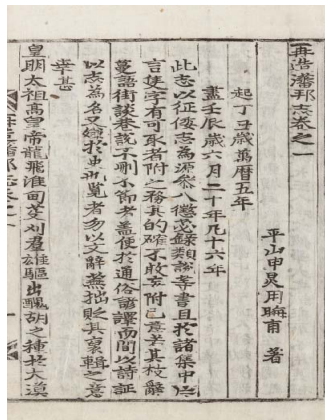 再造藩邦志卷之一
平山申炅用晦甫 著
起丁丑歲萬曆五年
盡壬辰歲六月二十年凡十六年
此志以征倭志爲源參八懲毖錄類說等書且於諸集中片
言隻字有可取者附之務其的確不敢妄附己意矣其枝辭
蔓語街談巷說不刪不節者盖便於通俗諺譯而間以詩証
以志爲名又嫌於史也覽者勿以文辭蕪拙貶其裒輯之意
幸甚
皇明太祖高皇帝龍飛淮甸芟刈羣雄驅出胡之種於大漠